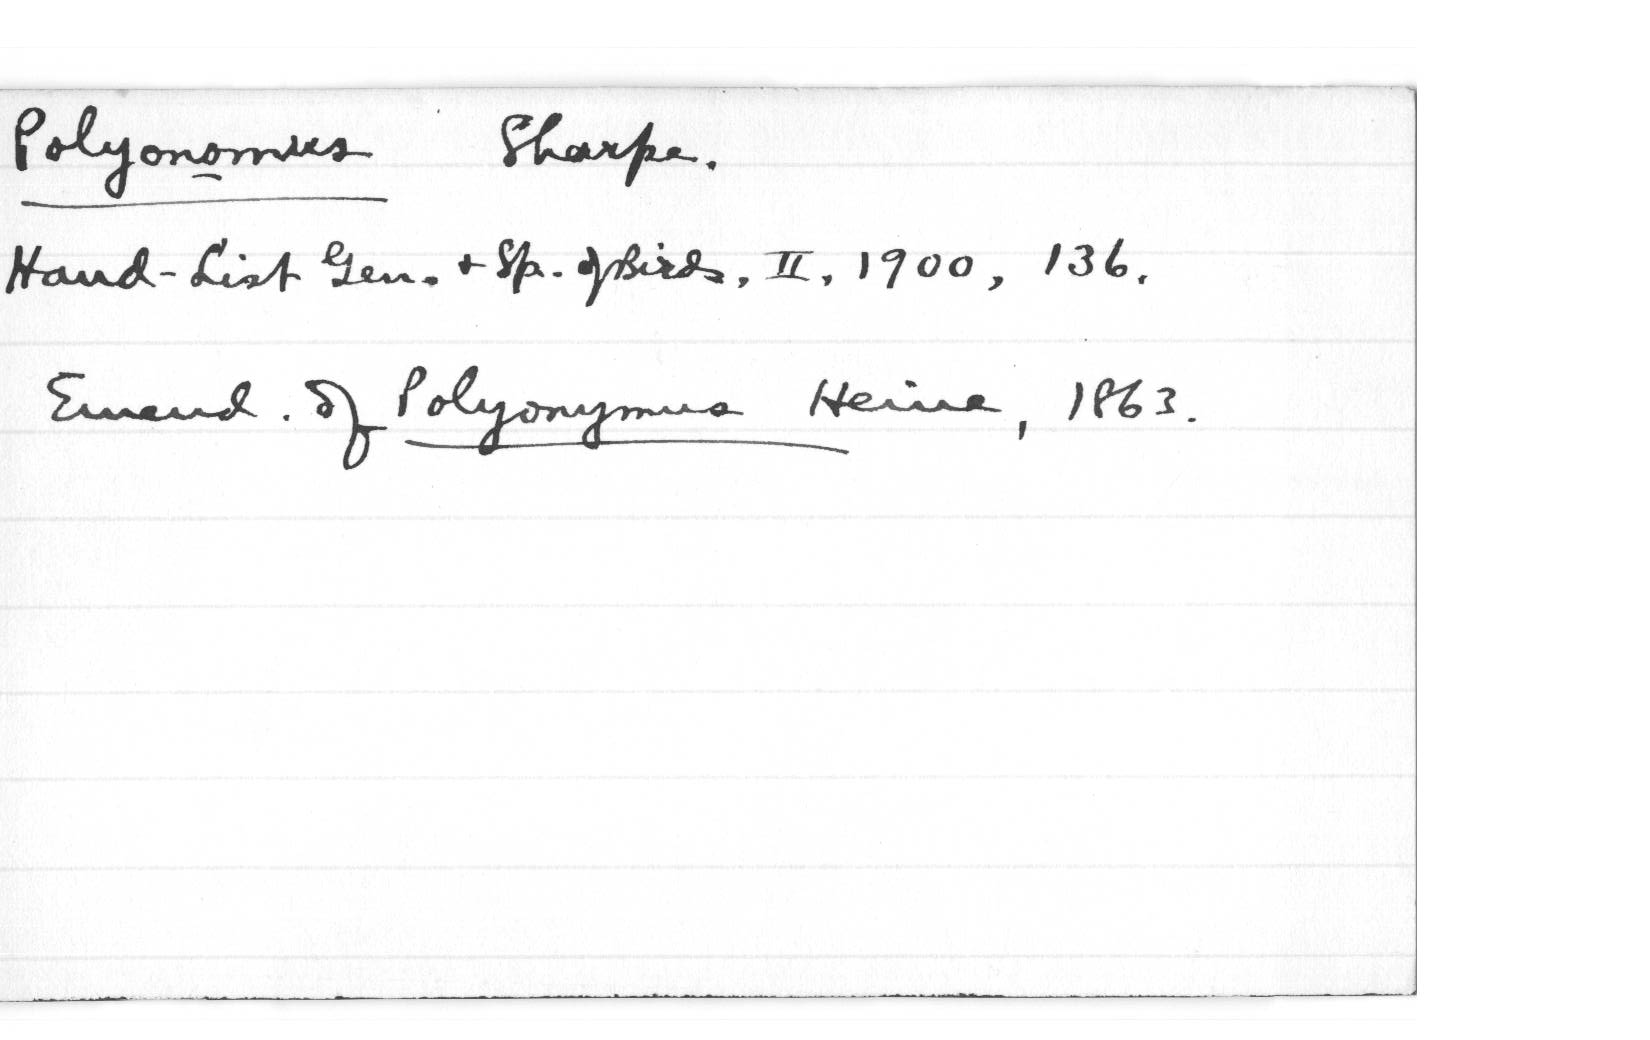 Polyonomus Sharpe.
Hand-List Gen. + Sp. of Birds, II, 1900, 136.
Emend. of Polyonymus Heine, 1863.